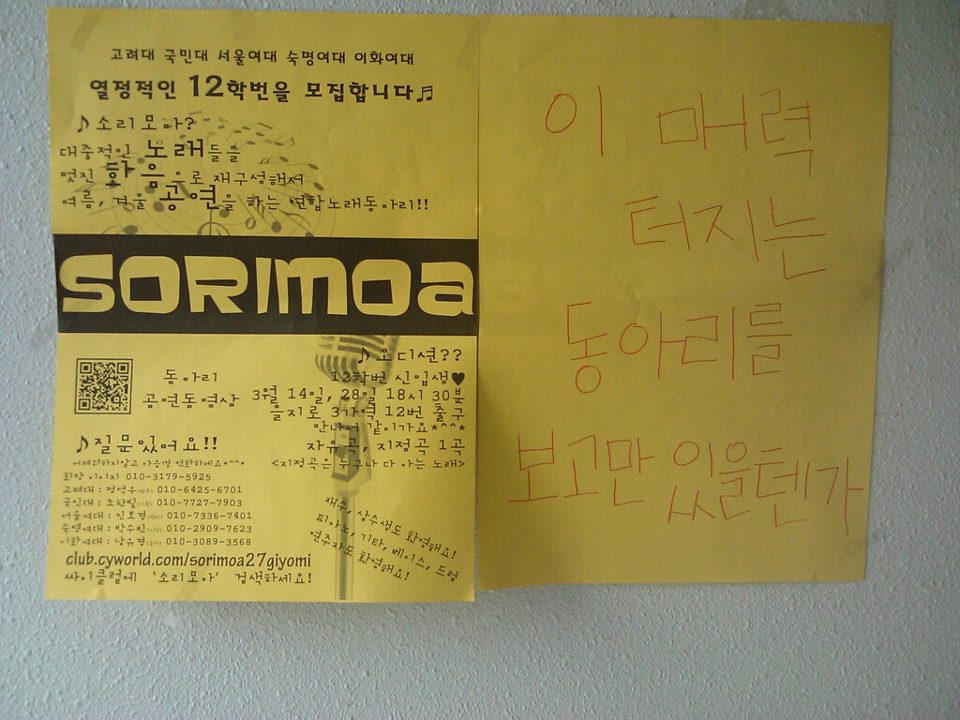 고려대 국민대 서울여대 숙명여대 이화여대
열정적인 12학번을 모집합니다♬
♪소리모아?
대중적인 노래들을
멋진 화음으로 재구성해서
여름, 겨울 공연을 하는 연합노래동아리!!
SORIMOA
♪오디션??
12학번 신입생♥
3월 14일, 28일 18시 30분
을지로 3가역 12번 출구
만나서 같이가요*^^*
자유곡, 지정곡 1곡
<지정곡은 누구나 다 아는 노래>
동아리
공연동영상
♪질문있어요!!
어려워하지말고 아무나 전화하세요*^^*
회장 이이지 010-3179-5925
고려대 : 정석우 010-6425-6701
국민대 : 조한빛 010-7727-7903
서울여대 : 진보경 010-7336-7401
숙명여대 : 박수빈 010-2909-7623
이화여대 : 남유경 010-3089-3568
club.cyworld.com/sorimoa27giyomi
싸이클럽에 '소리모아' 검색하세요!
재수, 삼수생도 환영해요!
피아노, 기타, 베이스, 드럼
연주자도 환영해요!
이 매력
터지는
동아리를
보고만 있을텐가